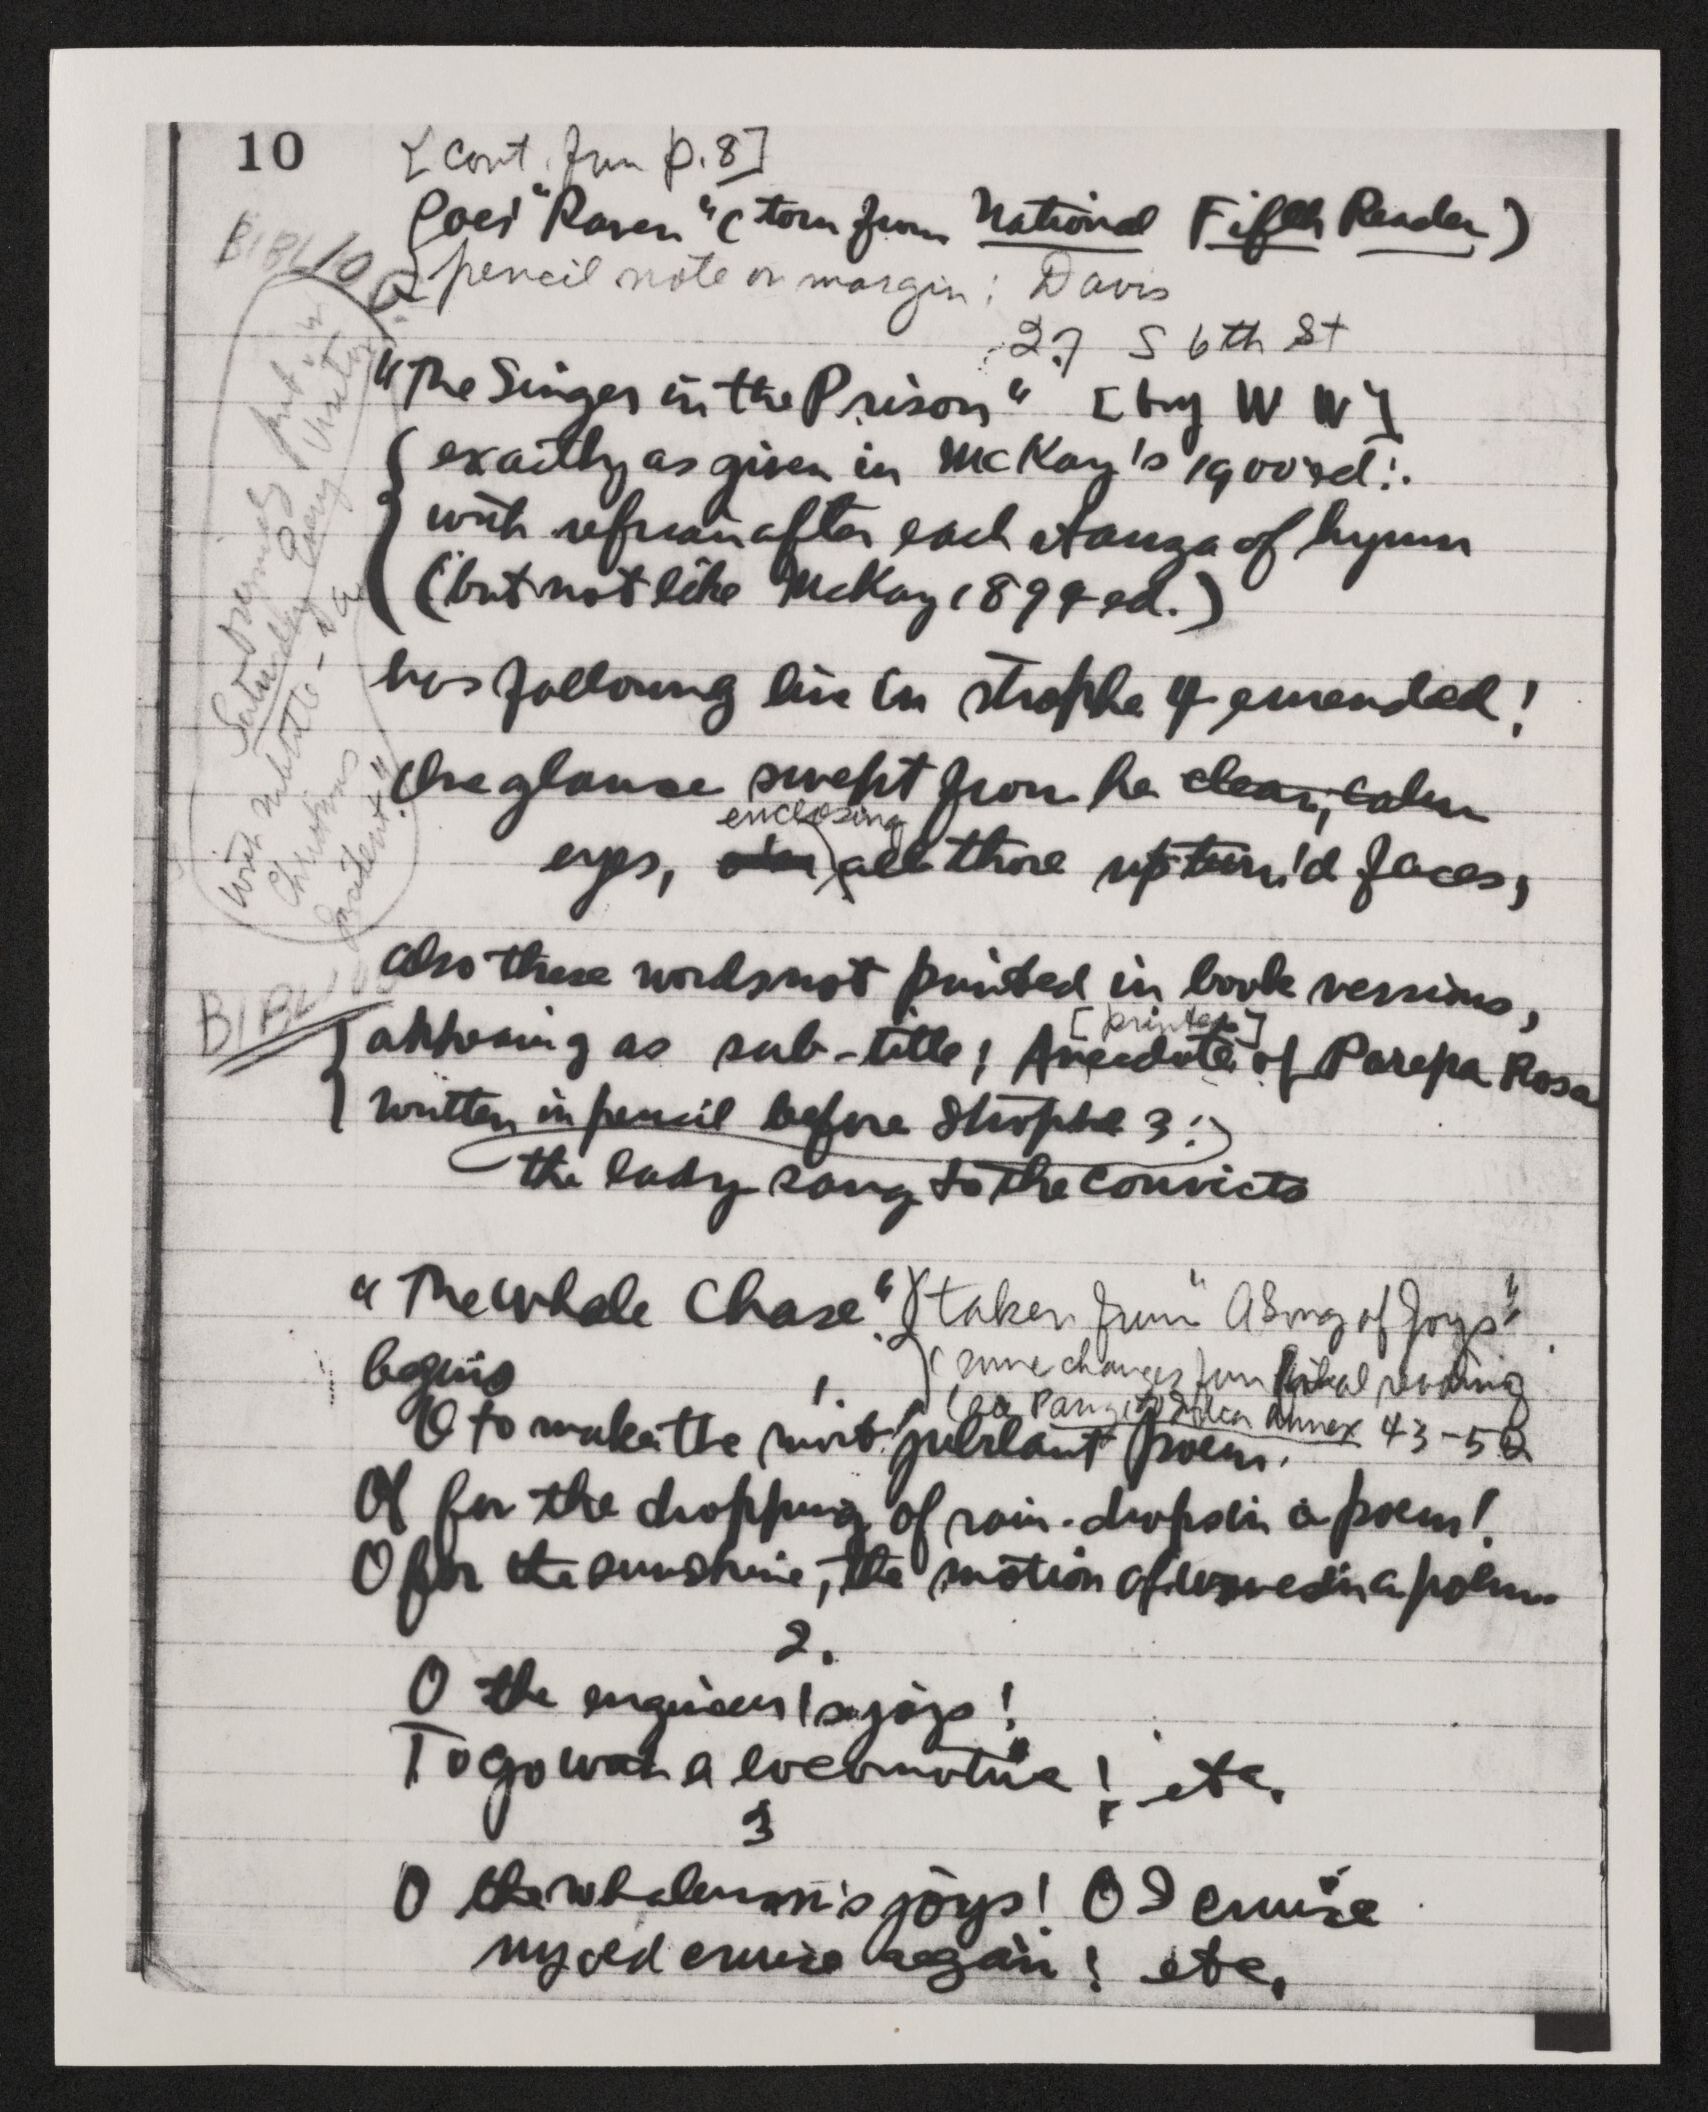 10
[cont. from p. 8]
Poe's "Raven" (torn from National Fifth Reader)
pencil note on margin: Davis
27 S 6th St
BIBLIOG.
"The Singer in the Prison" [by W W]
exactly as given in McKay's 1900 ed:.
with refrain after each stanza of hymn
(but not like McKay 1894 ed.)
put in
Saturday Evening Visitor
with subtitle - "a
Christmas
incident"
has following line in strophe 4 emended!
One glance swept from he clear, calm
enclosing
eyes, all those upturn'd faces,
also these words not printed in book versions,
BIBLIOG
[printed]
appearing as sub-title; Anecdote of Parepa Rosa
written in pencil before Strophe 3:
the lady sang to the convicts
"The Whale Chase" taken from "A Song of Joys"
(some changes from final reading
begins
(see Passage to India Annex 43-50
1.
O to make the most jubilant poem!
O for the dropping of rain-drops in a poem!
O for the sunshine, the motion of waves in a poem.
2.
O the engineer's joys!
To go with a locomotive! etc.
3
O the whaleman's joys! O I cruise
my old cruise again! etc.